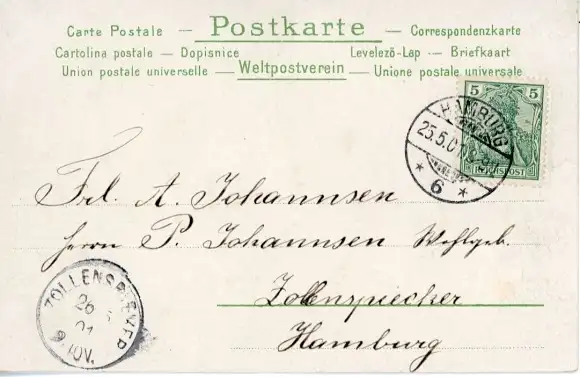 Carte Postale — Postkarte — Correspondenzkarte
Cartolina postale — Dopisnice Levelező-Lap — Briefkaart
Union postale universelle — Weltpostverein — Unione postale universale
5 5
REICHSPOST
HAMBURG
25.5.01
* 6 *
Frl. A. Johannsen
Herrn P. Johannsen Wohlgeb.
Zollenspieker
Hamburg
ZOLLENSPIEKER
26 5
01
9-10V.